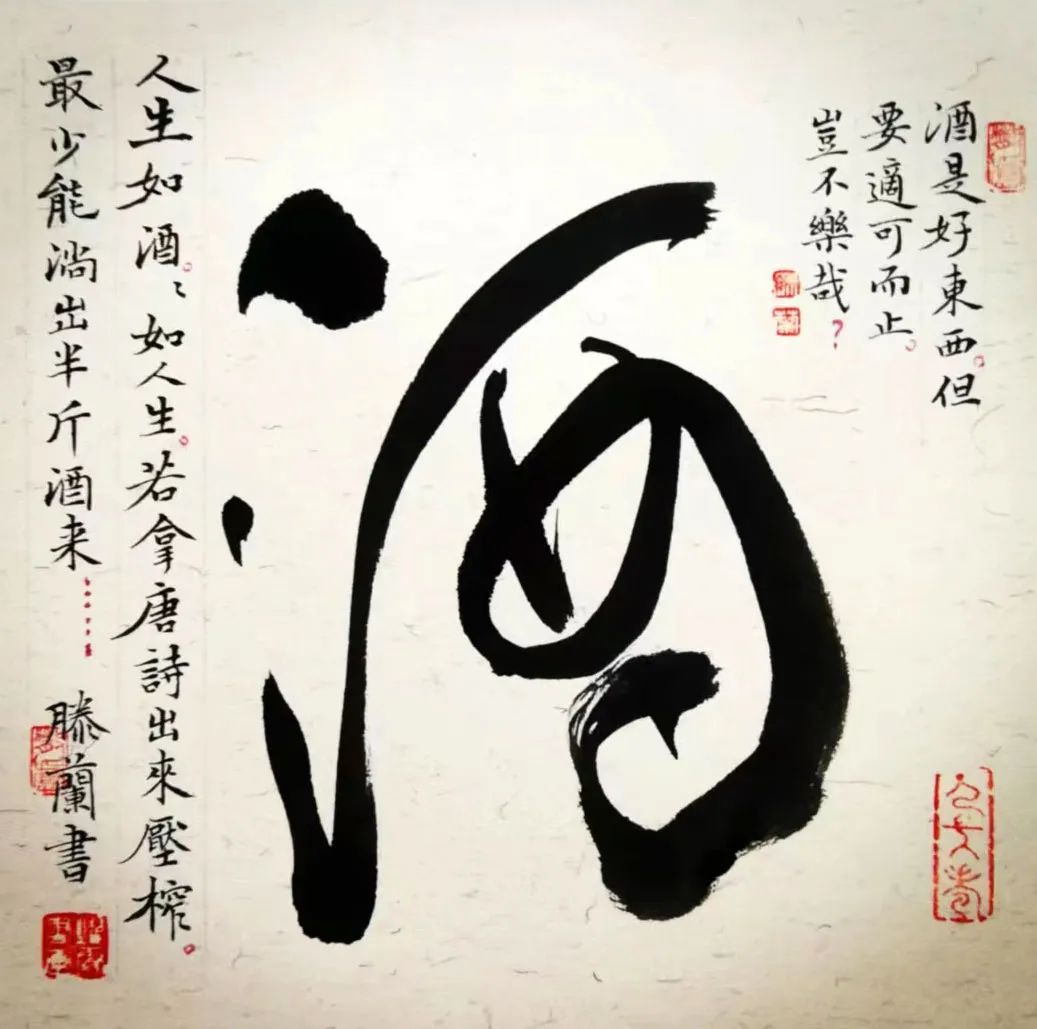 酒是好東西。但
要適可而止。
豈不樂哉?
酒
人生如酒。、如人生。若拿唐詩出來壓榨。
最少能淌出半斤酒来……
滕蘭書